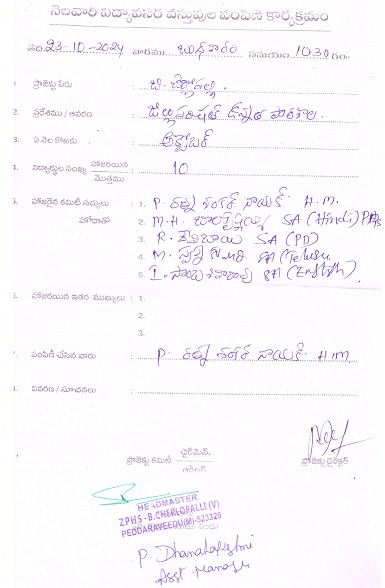 నెలవారీ విద్యావసర వస్తువుల పంపిణీ కార్యక్రమం
తేది 23-10-2024 వారము బుధవారం సమయం 10.30 గం
1. ప్రాజెక్టు పేరు : బి. చెర్లోపల్లి.
2. ప్రదేశము / ఆవరణ : జిల్లాపరిషత్ ఉన్నత పాఠశాల.
3. ఏ నెల కొఱకు : అక్టోబర్
4. విద్యార్థుల సంఖ్య హాజరయిన / మొత్తము : 10
5. హాజరైన కమిటీ సభ్యులు : 1. P. రత్న శంకర్ నాయక్ H.M.
హోదాతో 2. M.H. SA (Hindi)
3. R. దేవీబాయి SA (PD)
4. M. SA (Telugu)
5. I. సాంబశివరావు SA (English)
6. హాజరయిన ఇతర ముఖ్యులు : 1.
2.
3.
7. పంపిణీ చేసిన వారు : P. రత్న శంకర్ నాయక్ H.M
8. వివరణ / సూచనలు :
ప్రాజెక్టు కమిటీ ఛైర్మెన్,
ప్రాజెక్టు డైరెక్టర్
HEADMASTER
ZPHS-B.CHERLOPALLI (V)
PEDDARAVEEDU(M)-523320
P. Dhanalakshmi
Asst Manager